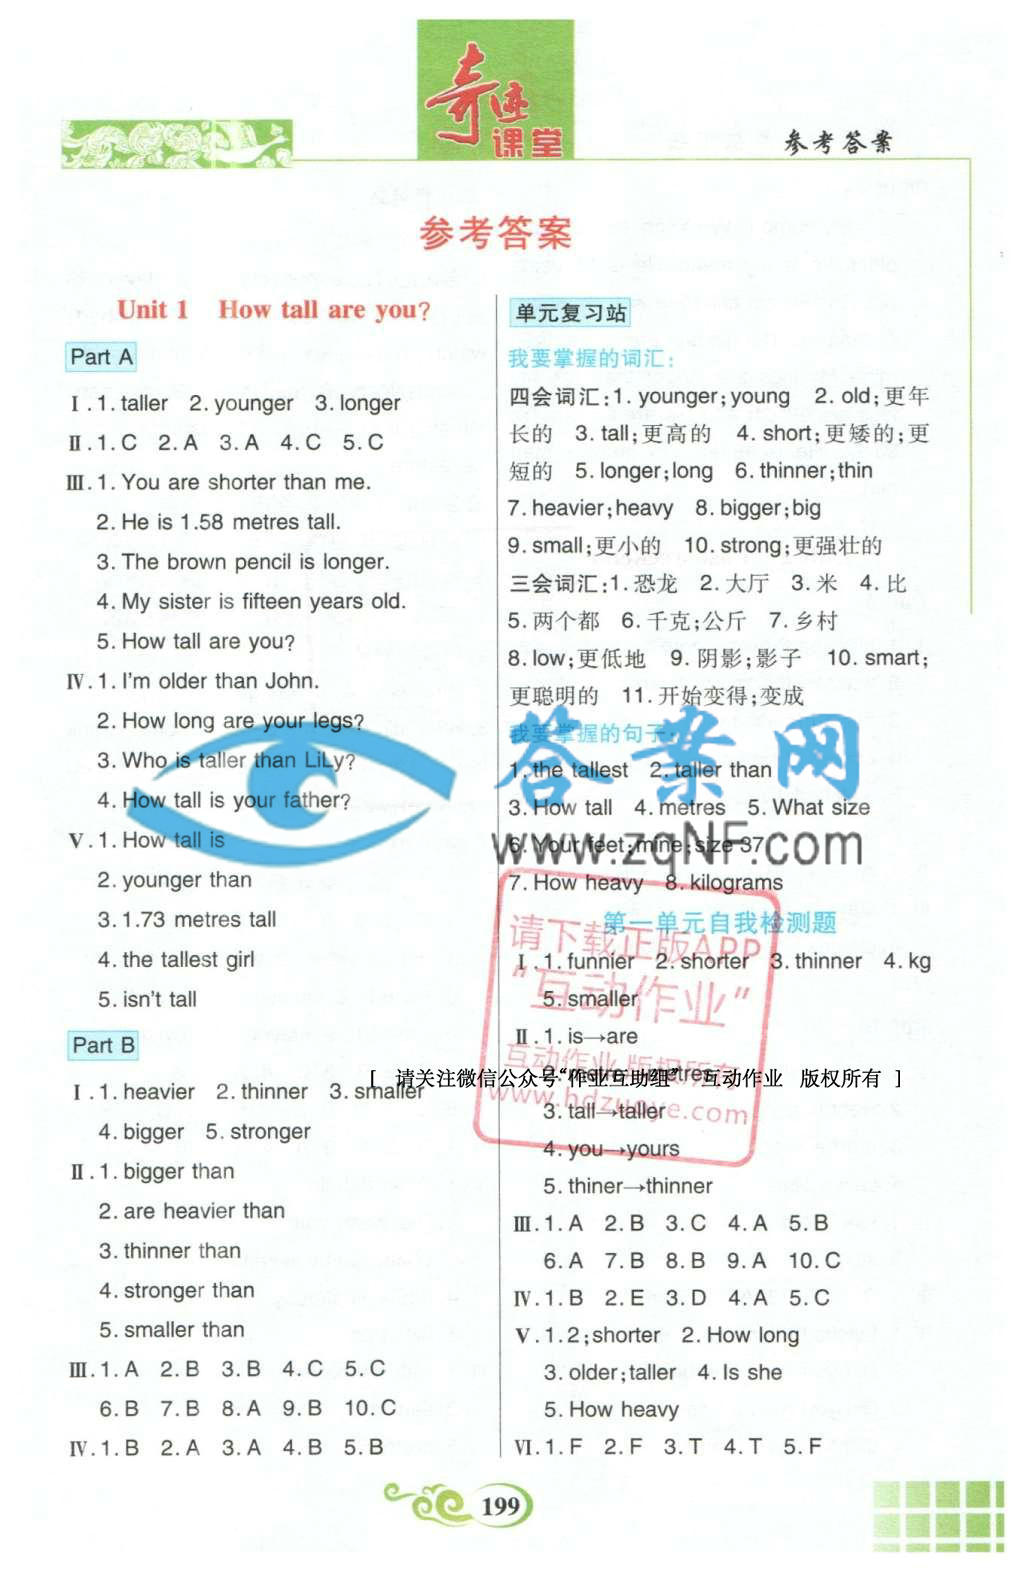 奇迹
课堂
参考答案
参考答案
Unit 1 How tall are you?
Part A
Ⅰ.1.taller 2.younger 3.longer
Ⅱ.1.C 2.A 3.A 4.C 5.C
Ⅲ.1.You are shorter than me.
2.He is 1.58 metres tall.
3.The brown pencil is longer.
4.My sister is fifteen years old.
5.How tall are you?
Ⅳ.1.I'm older than John.
2.How long are your legs?
3.Who is taller than LiLy?
4.How tall is your father?
Ⅴ.1.How tall is
2.younger than
3.1.73 metres tall
4.the tallest girl
5.isn't tall
Part B
Ⅰ.1.heavier 2.thinner 3.smaller
4.bigger 5.stronger
Ⅱ.1.bigger than
2.are heavier than
3.thinner than
4.stronger than
5.smaller than
Ⅲ.1.A 2.B 3.B 4.C 5.C
6.B 7.B 8.A 9.B 10.C
Ⅳ.1.B 2.A 3.A 4.B 5.B
单元复习站
我要掌握的词汇:
四会词汇:1.younger;young 2.old;更年
长的 3.tall;更高的 4.short;更矮的;更
短的 5.longer;long 6.thinner;thin
7.heavier;heavy 8.bigger;big
9.small;更小的 10.strong;更强壮的
三会词汇:1.恐龙 2.大厅 3.米 4.比
5.两个都 6.千克;公斤 7.乡村
8.low;更低地 9.阴影;影子 10.smart;
更聪明的 11.开始变得;变成
我要掌握的句子:
1.the tallest 2.taller than
3.How tall 4.metres 5.What size
6.Your feet;mine;size 37
7.How heavy 8.kilograms
第一单元自我检测题
Ⅰ.1.funnier 2.shorter 3.thinner 4.kg
5.smaller
Ⅱ.1.is→are
2.metre→metres
3.tall→taller
4.you→yours
5.thiner→thinner
Ⅲ.1.A 2.B 3.C 4.A 5.B
6.A 7.B 8.B 9.A 10.C
Ⅳ.1.B 2.E 3.D 4.A 5.C
Ⅴ.1.2;shorter 2.How long
3.older;taller 4.Is she
5.How heavy
Ⅵ.1.F 2.F 3.T 4.T 5.F
199
答案网
www.zqNF.com
请下载正版APP
“互动作业”
互动作业 版权所有
www.hdzuoye.com
[ 请关注微信公众号“作业互助组” 互动作业 版权所有 ]